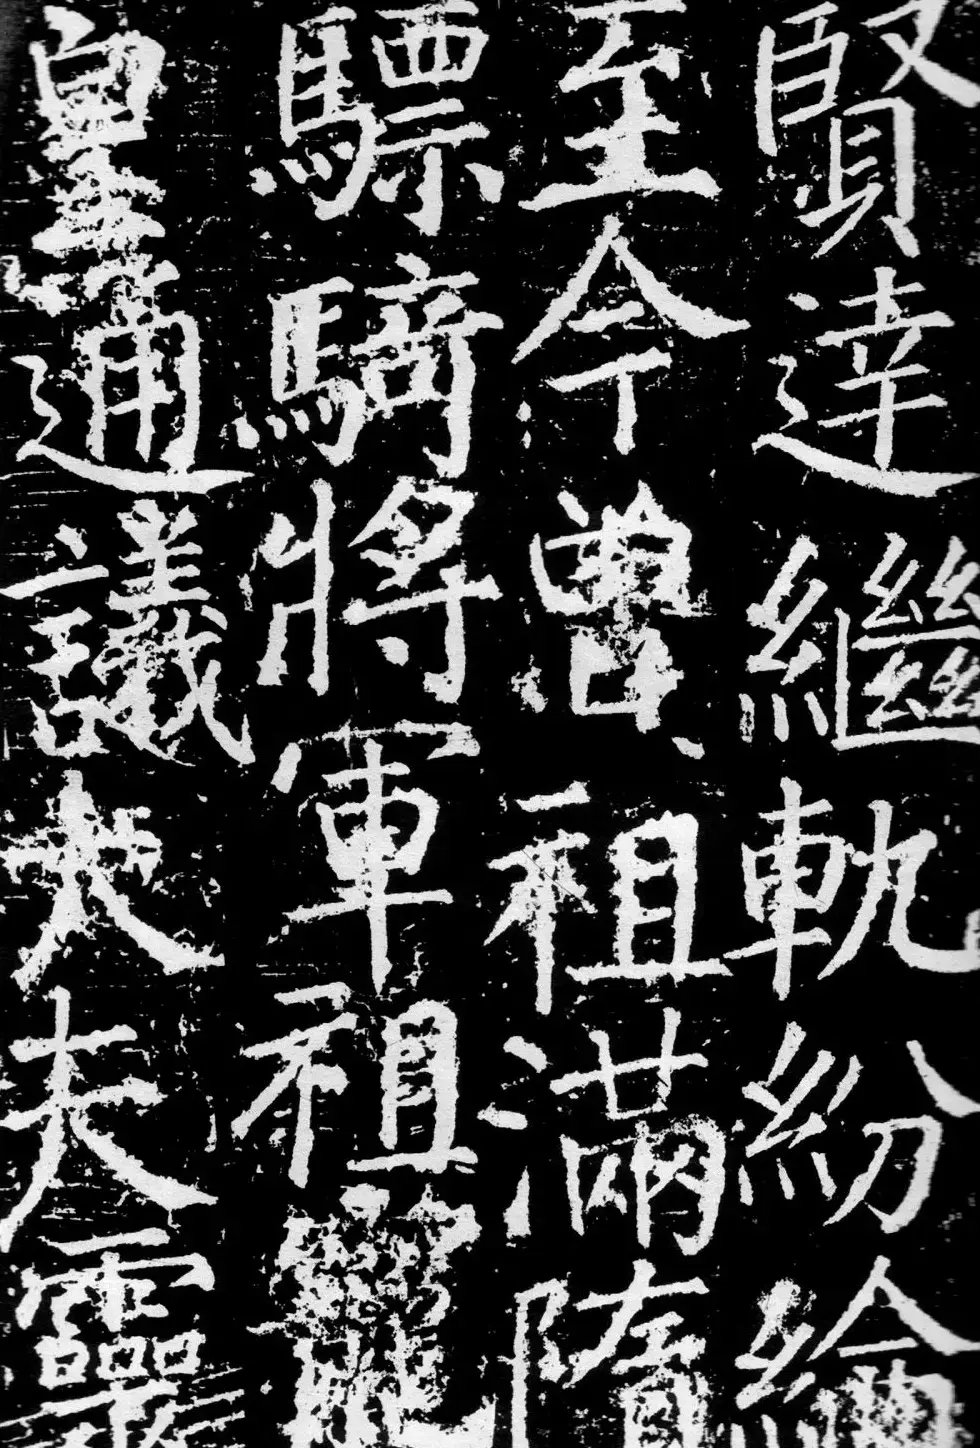 賢達繼軌紛綸
至今曾祖滿隋
驃騎將軍祖寵
皇通議大夫靈